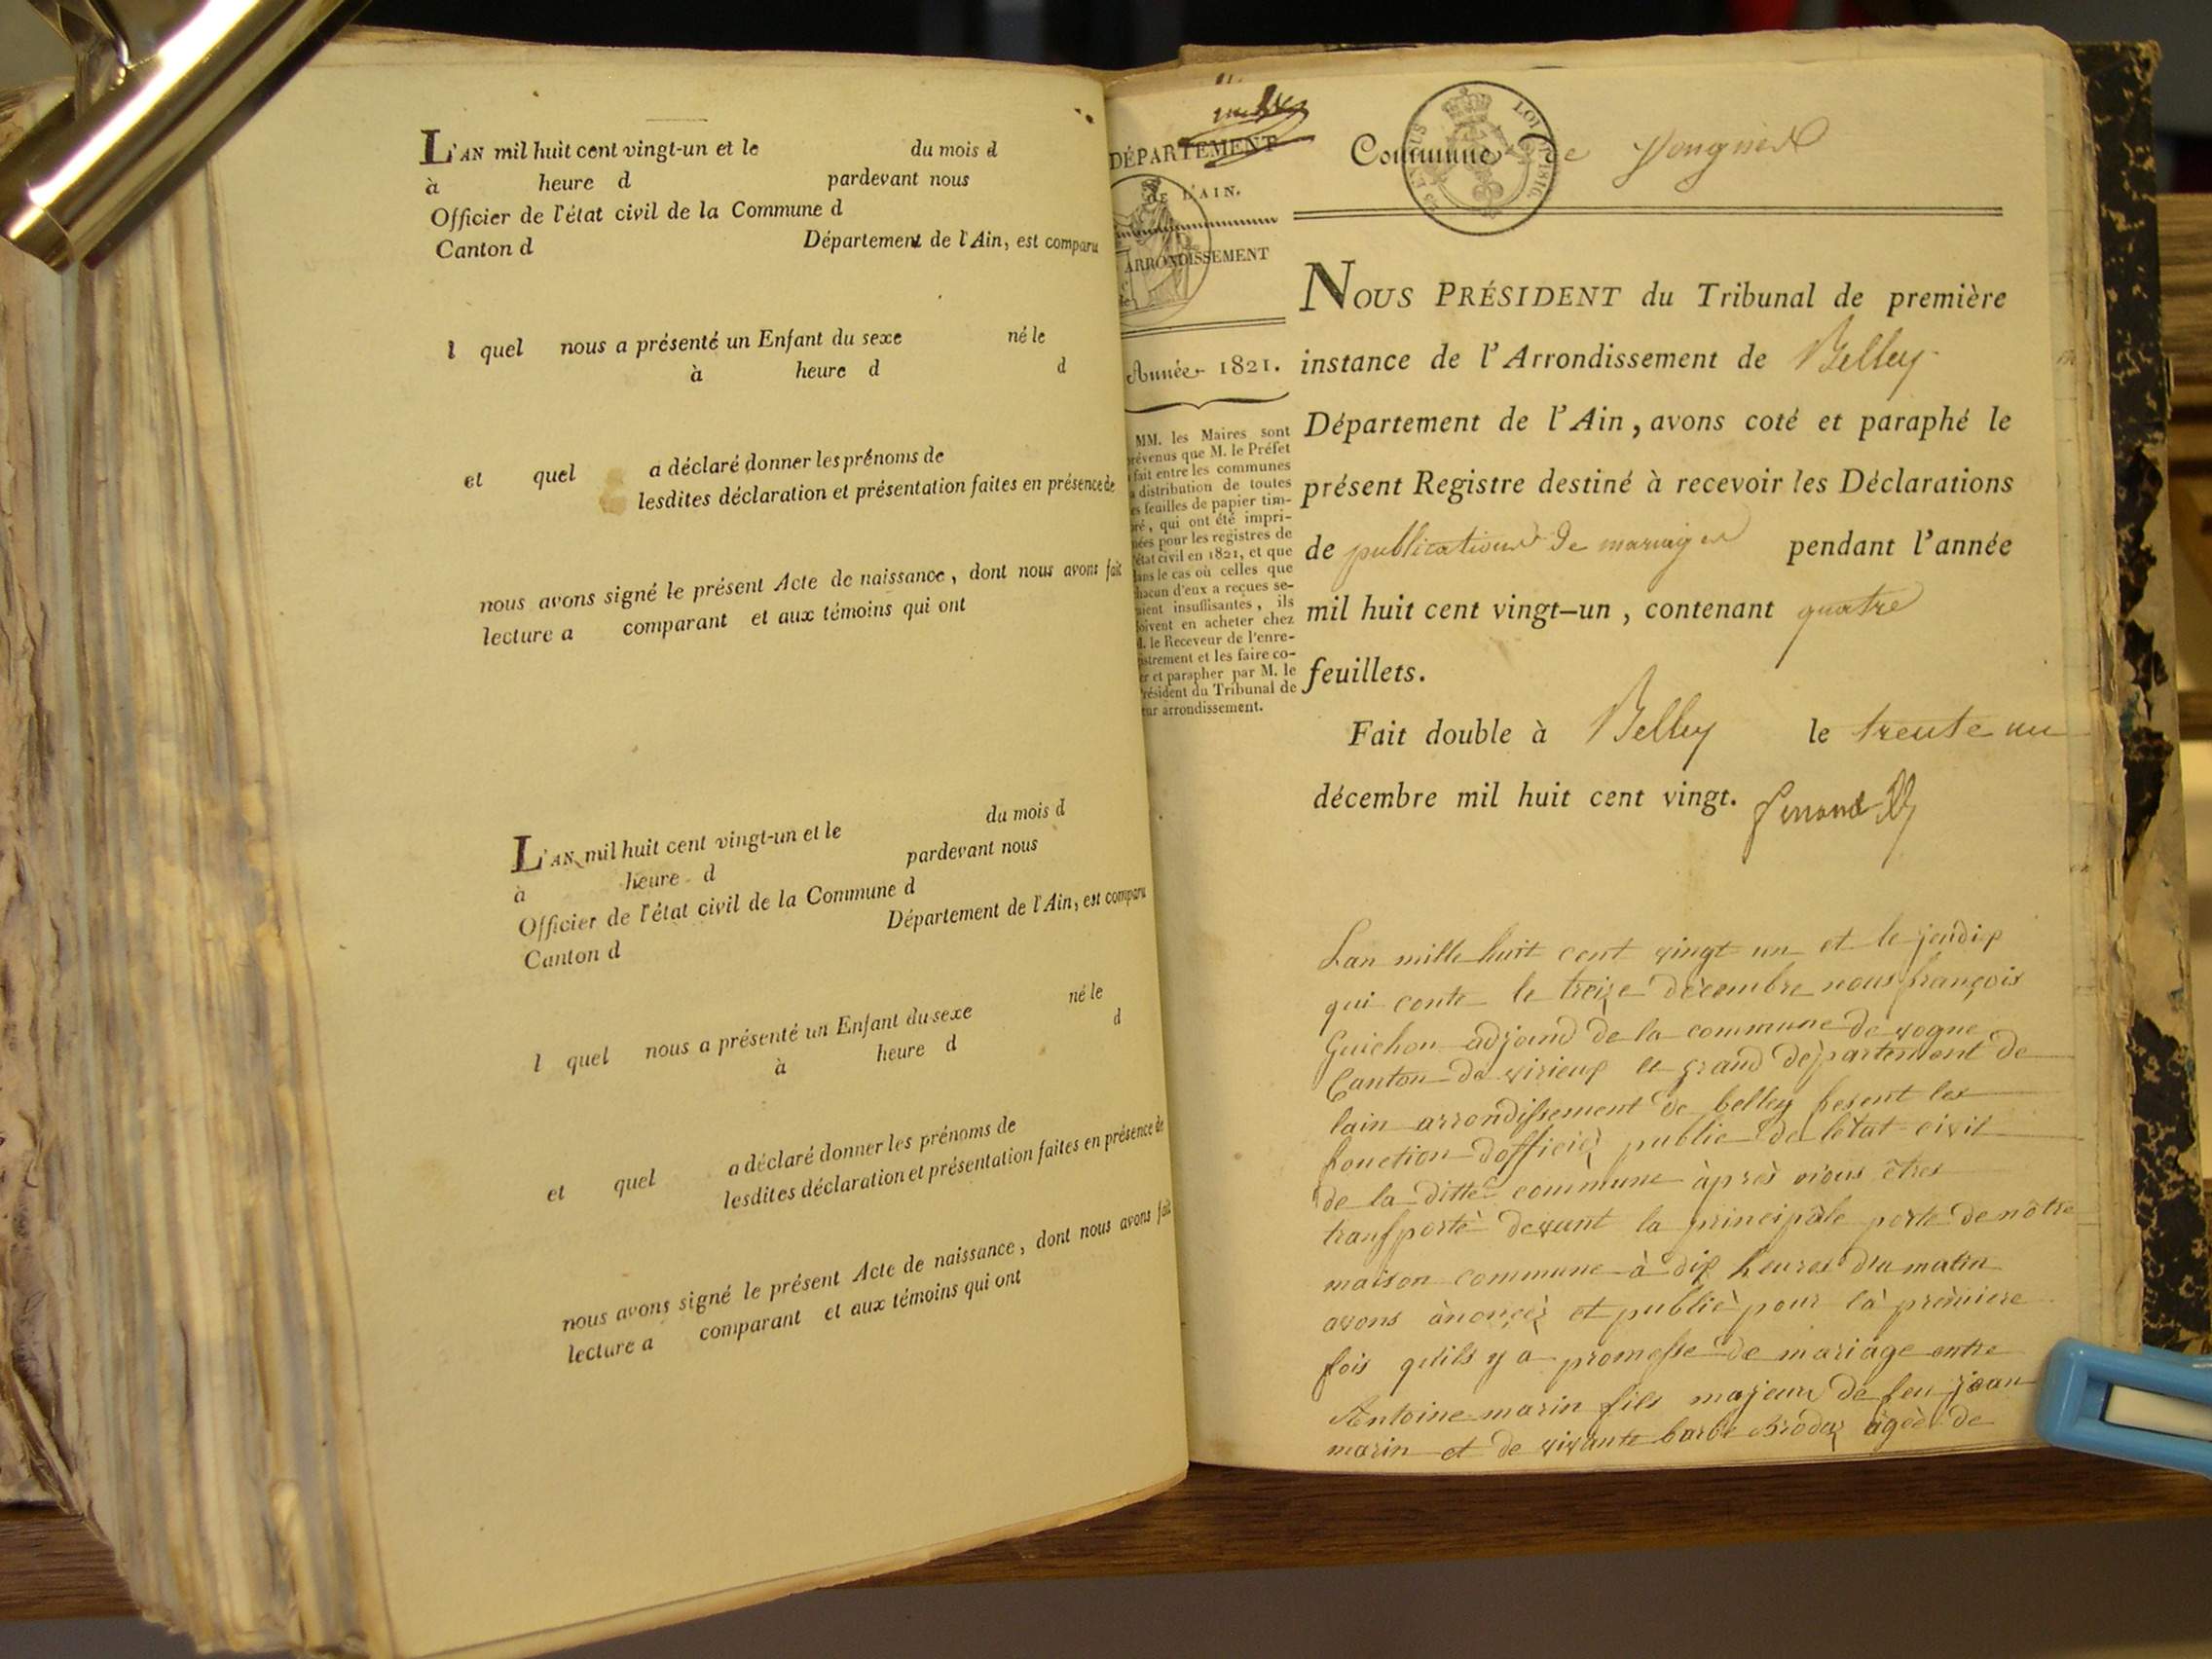 L'AN mil huit cent vingt-un et le du mois d
à heure d pardevant nous
Officier de l'état civil de la Commune d
Canton d Département de l'Ain, est comparu
l quel nous a présenté un Enfant du sexe né le
à heure d d
et quel a déclaré donner les prénoms de
lesdites déclaration et présentation faites en présence de
nous avons signé le présent Acte de naissance, dont nous avons fait
lecture a comparant et aux témoins qui ont
L'AN mil huit cent vingt-un et le du mois d
à heure d pardevant nous
Officier de l'état civil de la Commune d
Canton d Département de l'Ain, est comparu
l quel nous a présenté un Enfant du sexe né le
à heure d d
et quel a déclaré donner les prénoms de
lesdites déclaration et présentation faites en présence de
nous avons signé le présent Acte de naissance, dont nous avons fait
lecture a comparant et aux témoins qui ont
DÉPARTEMENT
DE L'AIN.
ARRONDISSEMENT
Année 1821.
MM. les Maires sont
prévenus que M. le Préfet
fait entre les communes
distribution de toutes
feuilles de papier tim-
bré, qui ont été impri-
mées pour les registres de
l'état civil en 1821, et que
dans le cas où celles que
chacun d'eux a reçues se-
raient insuffisantes, ils
doivent en acheter chez
M. le Receveur de l'enre-
gistrement et les faire co-
ter et parapher par M. le
Président du Tribunal de
leur arrondissement.
LOI 1816
Commune de Vongnes
NOUS PRÉSIDENT du Tribunal de première
instance de l'Arrondissement de Belley
Département de l'Ain, avons coté et paraphé le
présent Registre destiné à recevoir les Déclarations
de publications de mariages pendant l'année
mil huit cent vingt-un, contenant quatre
feuillets.
Fait double à Belley le trente un
décembre mil huit cent vingt.
Lan mille huit cent vingt un et le jeudis
qui conte le treize décembre nous françois
Guichon adjoind de la commune de vogne
Canton de virieux le grand département de
lain arrondissement de belley fesent les
fonction dofficiè public de letat civil
de la ditte commune après nous êtres
transporté devant la principale porte de nôtre
maison commune à dix heures du matin
avons ànoncèz et publiè pour là première
fois qu'ils y a promesse de mariage entre
Antoine marin fils majeur de feu jean
marin et de vivante barbe Brodaz agèe de